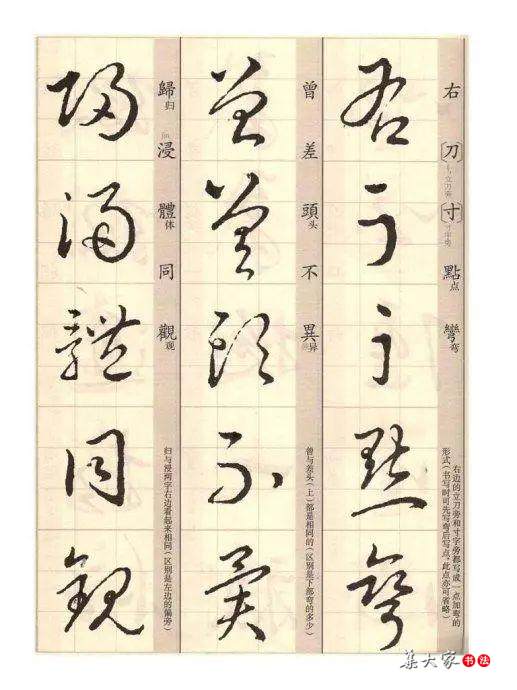 右〔刀〕〔寸〕點点彎弯
右边的立刀旁和寸字旁都写成一点加弯的
形式(书写时可先写弯后写点,此点亦可省略)
右刀寸點彎
曾差頭头不異异
曾与差头(上)都是相同的(区别是下部弯的多少)
曾差頭不異
歸归浸jìn體体同觀观
归与浸两字右边看起来相同(区别是左边的偏旁)
歸浸體同觀
集大家书法